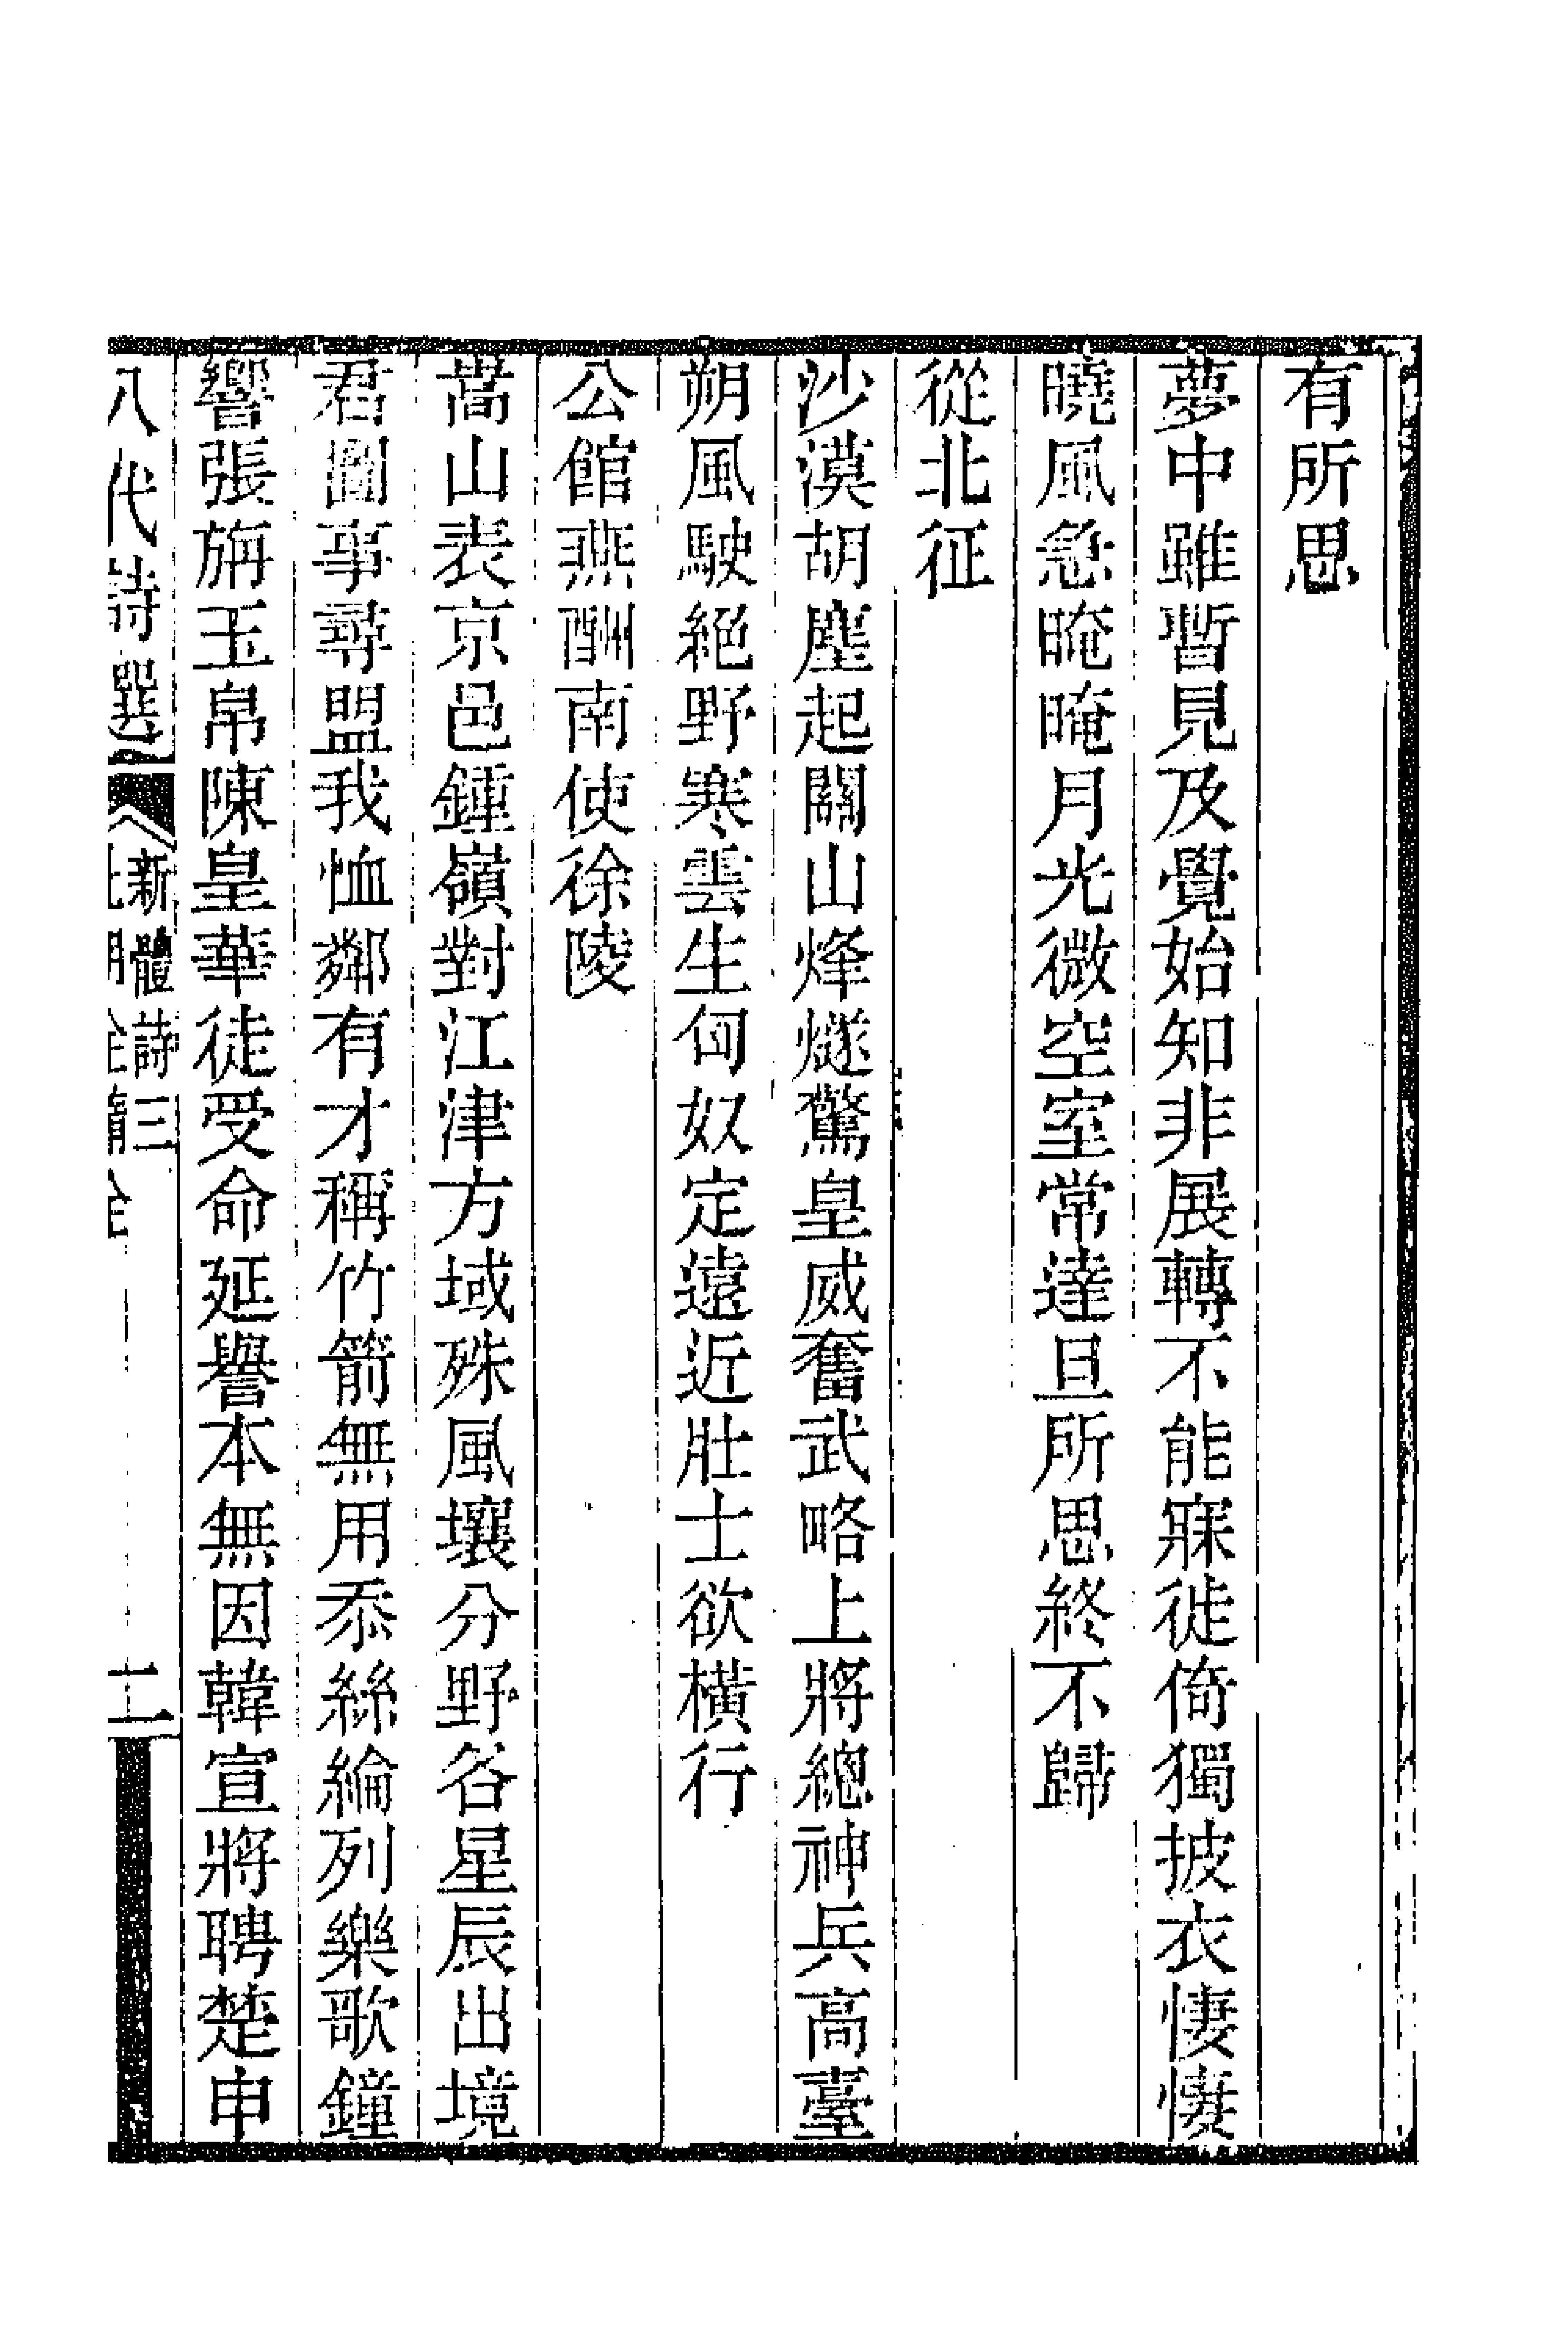 有所思
夢中雖暫見及覺始知非展轉不能寐徙倚獨披衣悽悽
曉風急晻晻月光微空室常達旦所思終不歸
從北征
沙漠胡塵起關山烽燧驚皇威奮武略上將總神兵高臺
朔風駛絕野寒雲生匈奴定遠近壯士欲橫行
公館燕酬南使徐陵
嵩山表京邑鍾嶺對江津方域殊風壤分野各星辰出境
君圖事尋盟我恤鄰有才稱竹箭無用忝絲綸列樂歌鐘
響張旃玉帛陳皇華徒受命延譽本無因韓宣將聘楚申
八代詩選
新體詩三
二